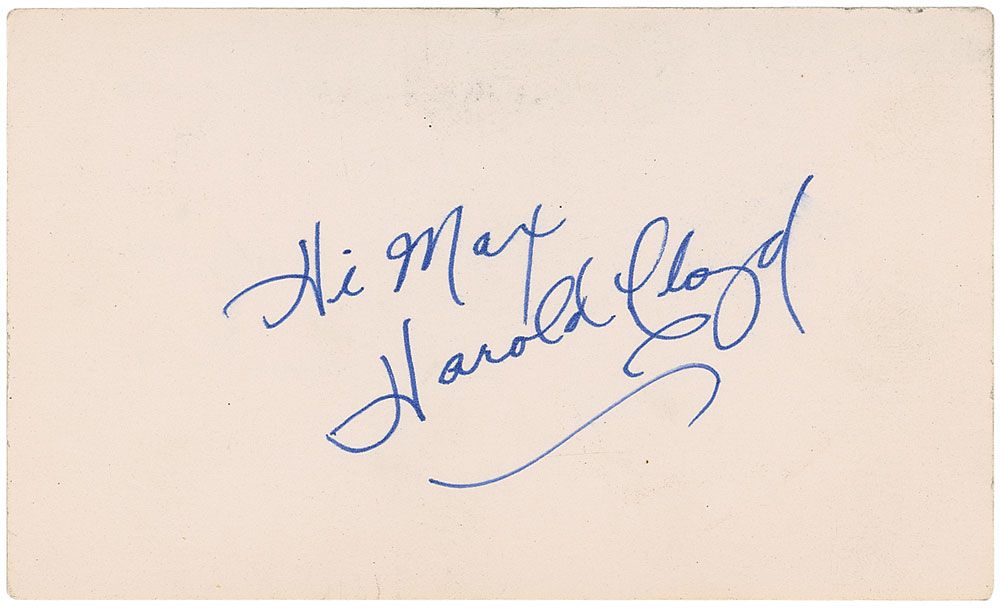 Hi Max
Harold Lloyd